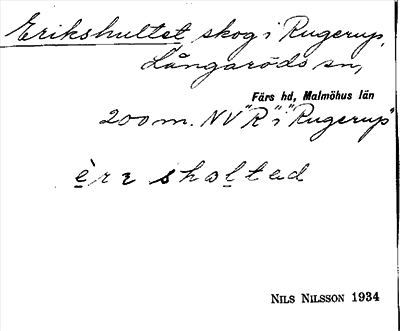 Erikshultet skog i Rugerup,
Långaröds sn,
Färs hd, Malmöhus län
200 m. NV "R" i "Rugerup"
NILS NILSSON 1934